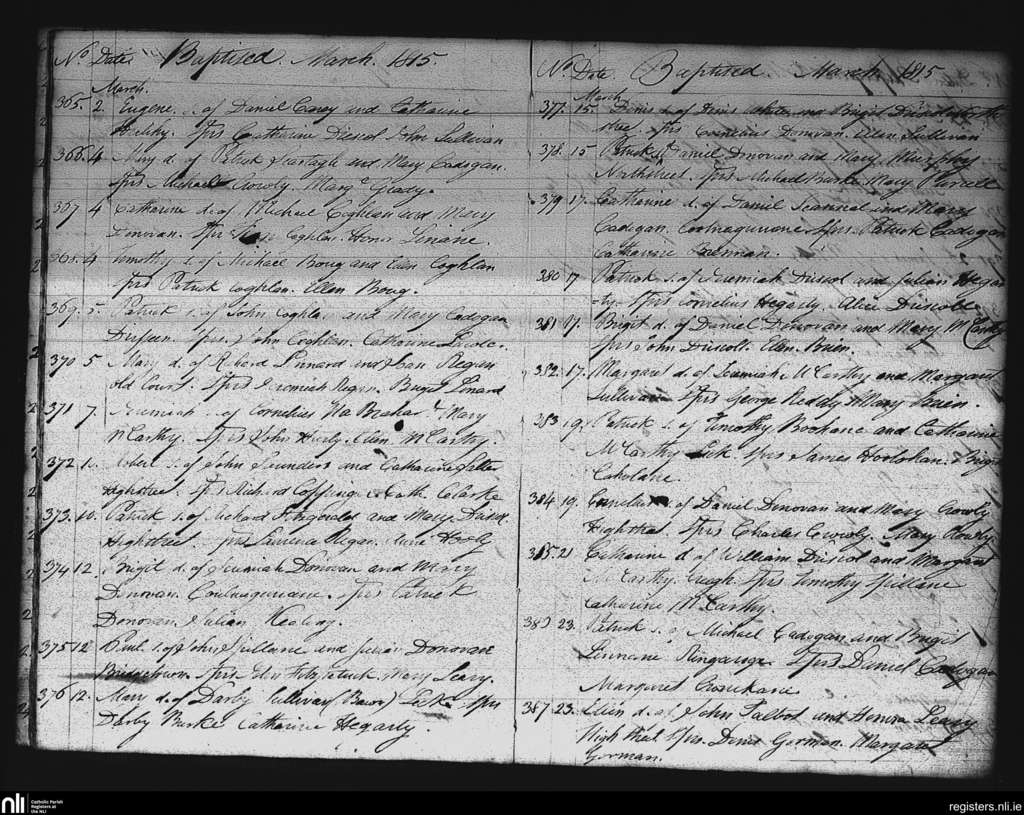 No. Date. Baptised. March. 1815.
March.
365. 2. Eugene. s. of Daniel Carey and Catharine
Sprs Catharine Driscol John Sullivan
366. 4 Mary d. of Patrick and Mary Cadogan.
Sprs Michael Crowly. Mary Geady.
367 4 Catharine d. of Michael Coghlan and Mary
Donovan. Sprs Coghlan. Honor Linane.
368. 4 Timothy s. of Michael Boug and Coghlan
Sprs Patrick Coghlan. Ellen Boug.
369. 5. Patrick s. of John Coghlan and Mary Cadogan
Sprs. John Coghlan. Catharine
370 5 Mary d. of Richard Linnard and Regan
old Court. Sprs Jeremiah Regan. Brigit Linard
371 7. Jeremiah s. of Cornelius & Mary
McCarthy. Sprs John Hurly. Ellen McCarthy.
372 1 Robert s. of John Saunders and Catharine
Highstreet. Sprs Richard Coppinger Cath. Clarke
373. 10. Patrick s. of Richard Fitzgerald and Mary
Highstreet. sprs Laurence Regan.
374 12. Brigit d. of Jeremiah Donovan and Mary
Donovan. Sprs Patrick
Donovan. Julian
375 12 Paul s. of John Spillane and Donovan
Bridgetown. Sprs Fitzpatrick. Mary Leary.
376 12. Mary d. of Darby Sullivan (Bawn) Sprs
Darby Burke Catharine Hegarty.
No. Date. Baptised. March 1815
March
377. 15. Denis s. of Denis and Brigit
Sprs Cornelius Donovan. Ellen Sullivan
378. 15 Patrick s. Daniel Donovan and Mary Murphy
Northstreet. Sprs Michael Burke. Mary Purcell
379 17. Catharine d. of Daniel Scannel and Mary
Cadogan. Sprs Patrick Cadogan
Catharine Brennan.
380 17 Patrick s. of Jeremiah Driscol and Julian Hegar
-ty. Sprs Cornelius Hegarty. Alice Driscoll
381 17. Brigit d. of Daniel Donovan and Mary McCarthy
Sprs John Driscoll. Ellen Brien.
382. 17. Margaret d. of Jeremiah McCarthy and Margaret
Sullivan Sprs George Reddy Mary Brien.
383 19. Patrick s. of Timothy Bohane and Catharine
McCarthy Sprs James Hoolohan. Brigit
384 19. Cornelius s. of Daniel Donovan and Mary Crowly
Highstreet. Sprs Charles Crowly. Mary Crowly
385. 21 Catharine d. of William Driscol and Margaret
McCarthy. Creagh. Sprs Timothy Spillane
Catharine McCarthy.
386 23. Patrick s. of Michael Cadogan and Brigit
Linnane Ringaroga. Sprs Daniel Cadogan
Margaret
387 23. Ellen d. of John Talbot and Honora Leary
High street Sprs. Denis Gorman. Margaret
Gorman.
nli
Catholic Parish
Registers at
the NLI
registers.nli.ie